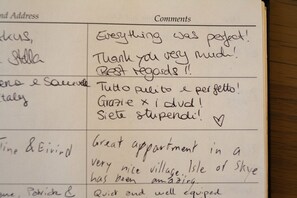 nd Address Comments
kus, Everything was perfect!
Stella Thank you very much!
Best regards!!
Tutto pulito e perfetto!
taly Grazie x i dvd!
Siete stupendi!
Tine & Eivind Great appartment in a
very nice village. Isle of Skye
has been amazing
Patrick & Quiet and well equiped